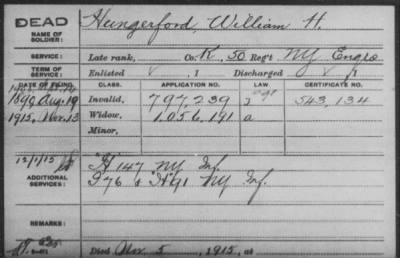 DEAD
NAME OF SOLDIER: Hungerford, William H.
SERVICE: Late rank, Co. K, 50 Reg't NY Engrs
TERM OF SERVICE: Enlisted , 1 Discharged , 1
DATE OF FILING. CLASS. APPLICATION NO. LAW. CERTIFICATE NO.
1890, Aug. 19 Invalid, 797,239 543,134
1915, Nov. 13 Widow, 1,056,191 a
Minor,
12/1/15
ADDITIONAL SERVICES: H 147 NY Inf.
I 76 & H 91 NY Inf.
REMARKS:
Died Nov. 5, 1915, at